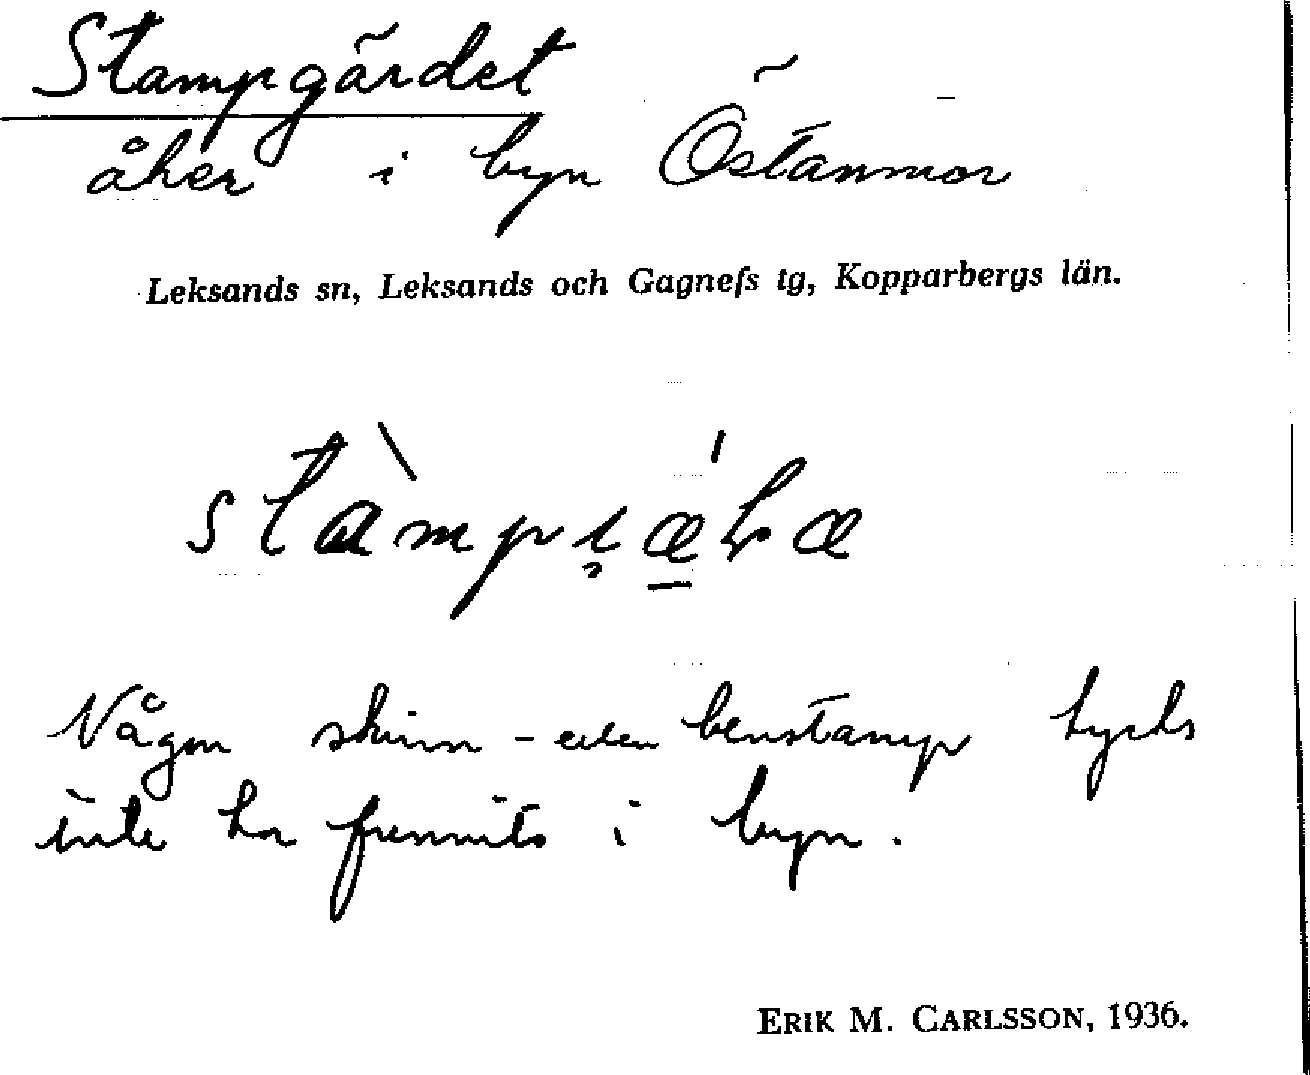 Stampgärdet
åker i byn Östanmor
Leksands sn, Leksands och Gagnefs tg, Kopparbergs län.
Någon skinn- eller benstamp tycks
inte ha funnits i byn.
ERIK M. CARLSSON, 1936.